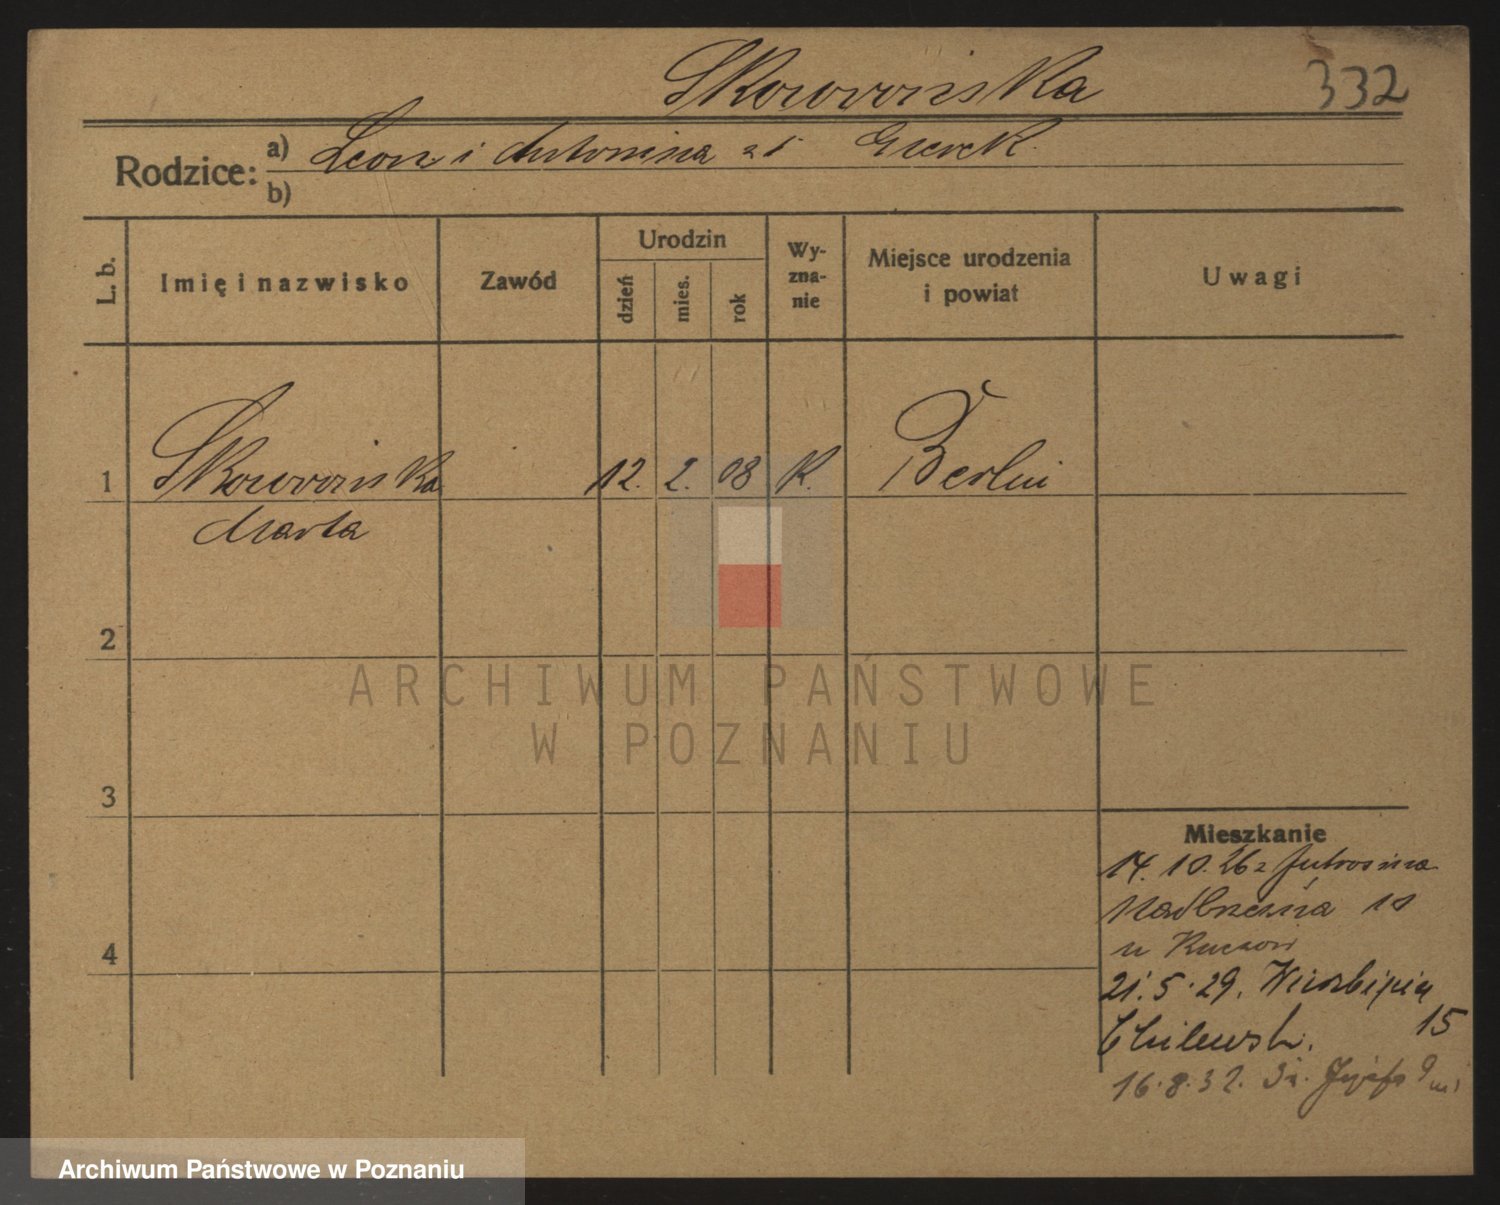 Skowrońska
332
Rodzice:
a) Leon i Antonina
b)
L. b.
Imię i nazwisko
Zawód
Urodzin
dzień
mies.
rok
Wy-
zna-
nie
Miejsce urodzenia
i powiat
Uwagi
1 Skowrońska 12. 2. 08 K. Berlin
Marta
2
3
4
Mieszkanie
14. 10. 26 z Jutrosina
Nadbrzeżna 10
u
21.5.29. Wierzbięcic
15
16.8.32. Józefa
ARCHIWUM PAŃSTWOWE
W POZNANIU
Archiwum Państwowe w Poznaniu